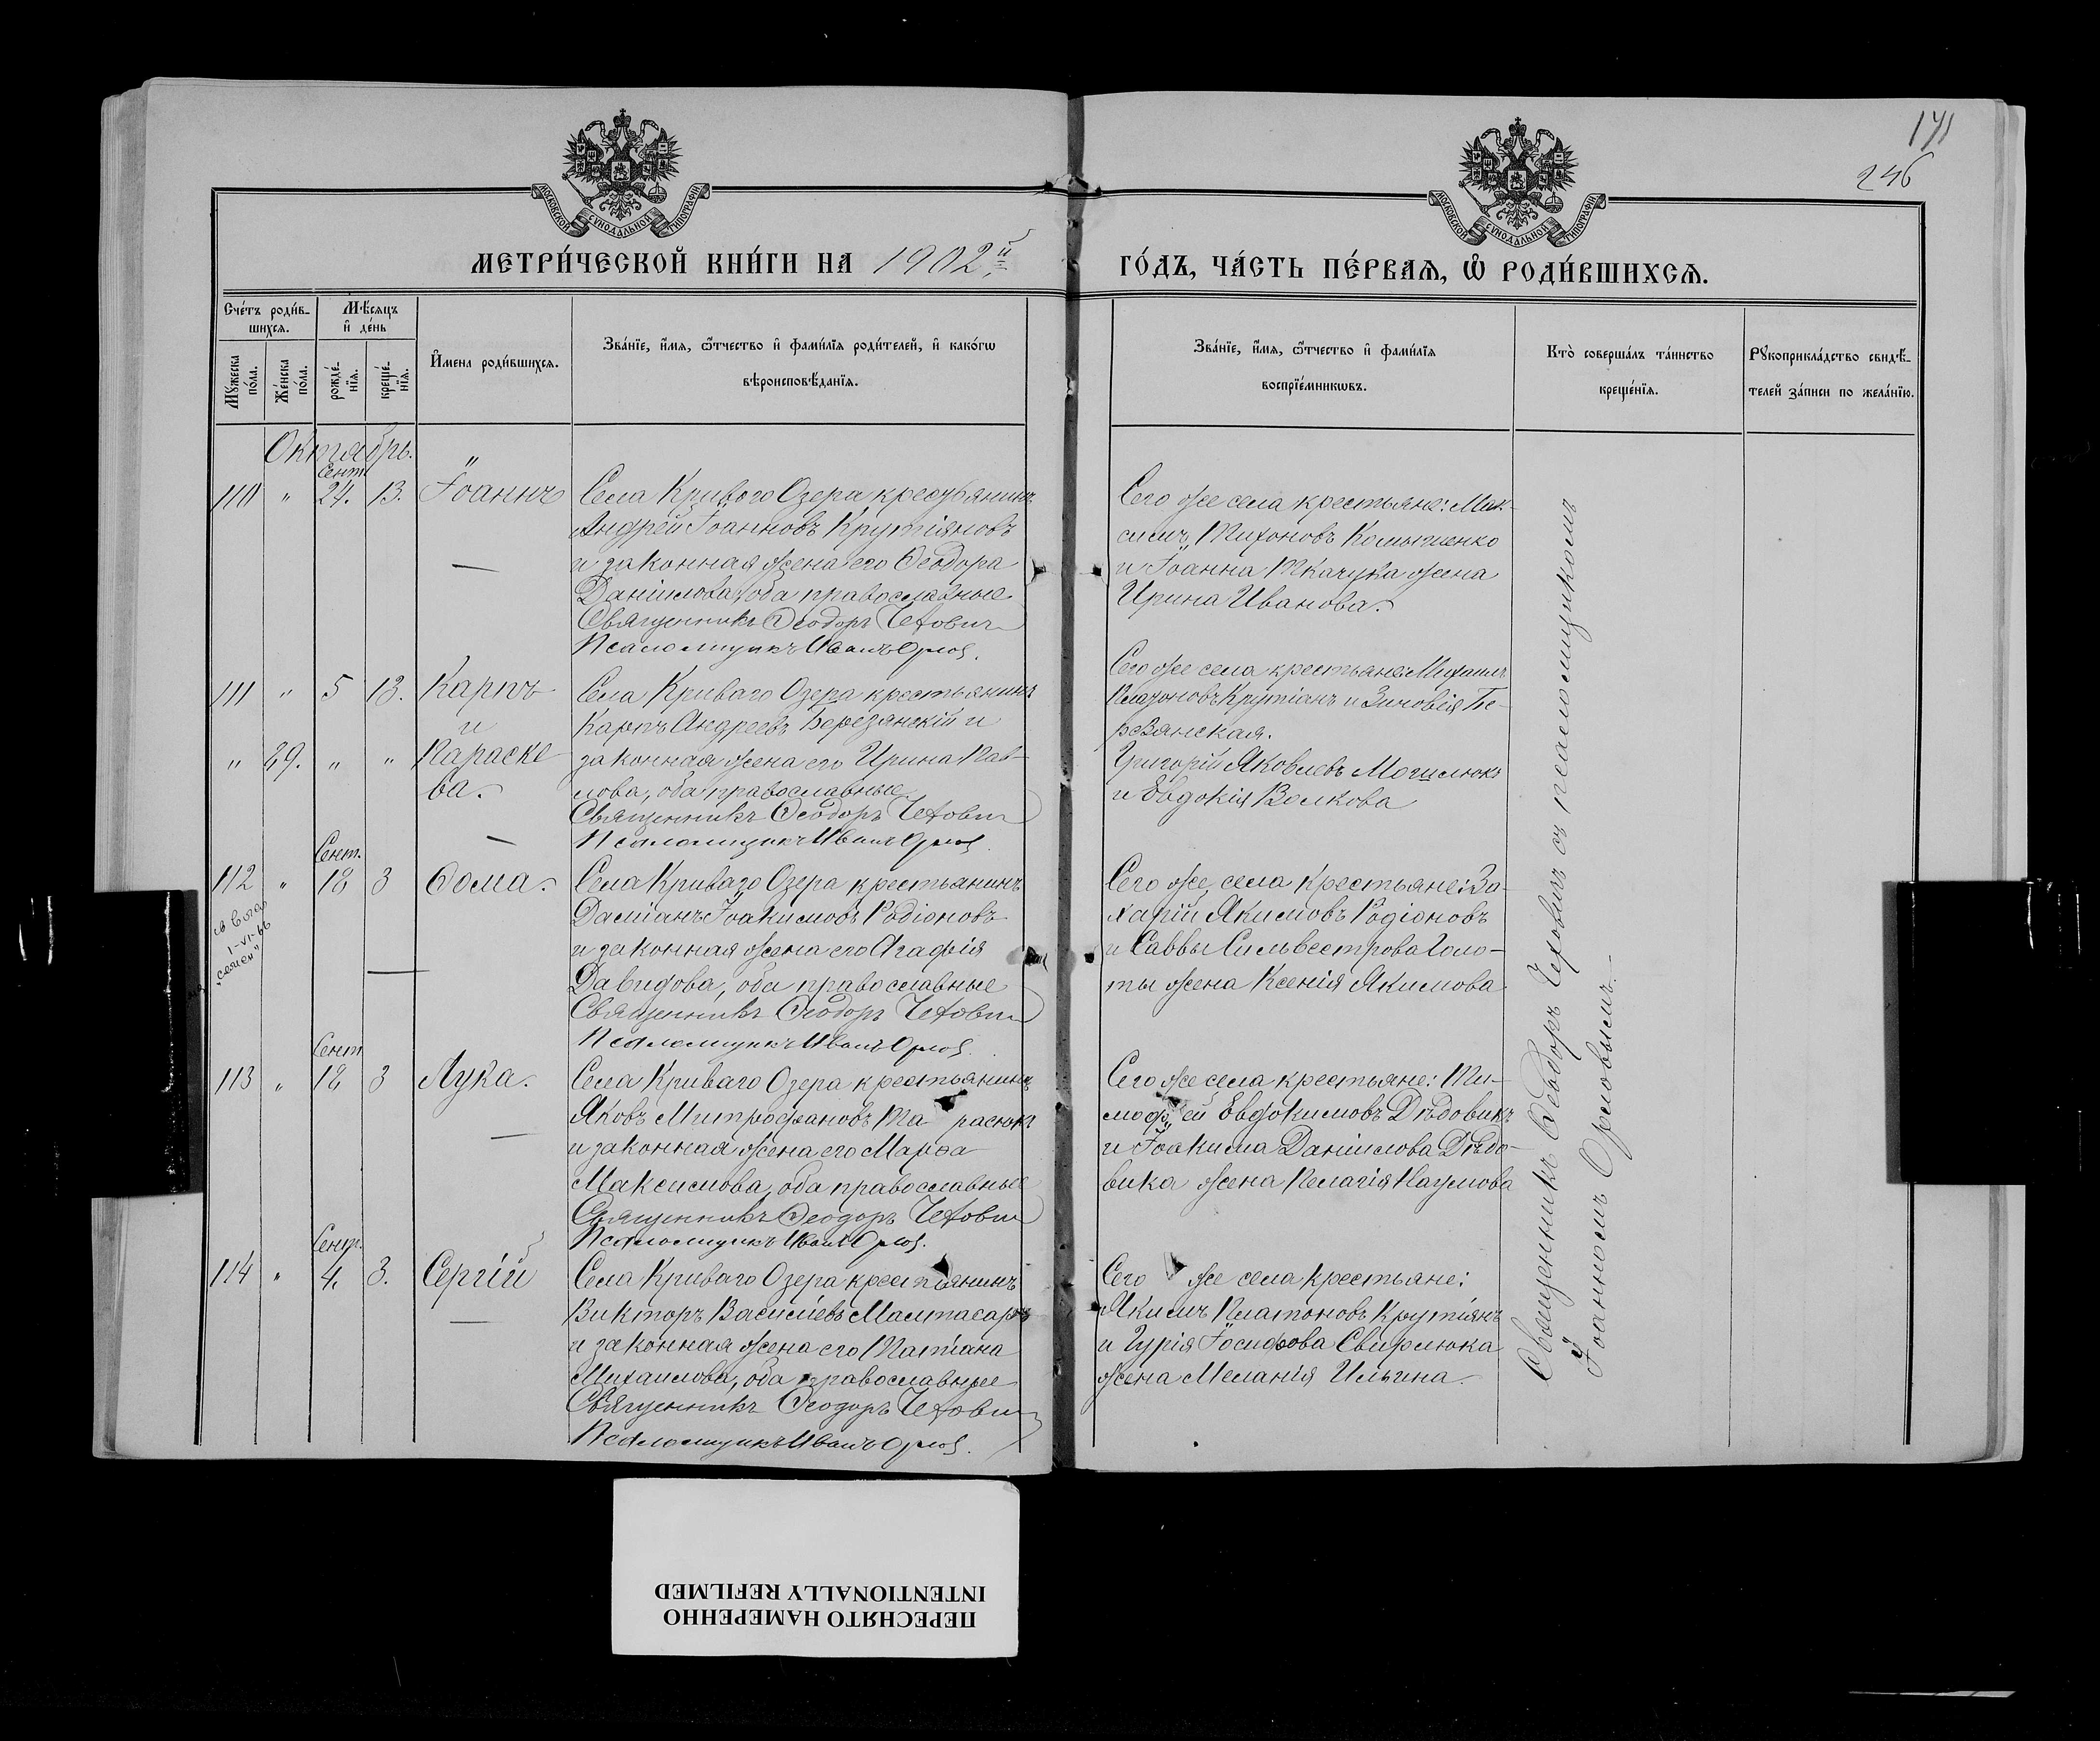 171
246
МОСКОВСКОЙ СѴНОДАЛЬНОЙ ТИПОГРАФІИ
МОСКОВСКОЙ СѴНОДАЛЬНОЙ ТИПОГРАФІИ
МЕТРИ́ЧЕСКОЙ КНИ́ГИ НА 1902й
ГО́ДЪ, ЧА́СТЬ ПЕ́РВАѦ, Ѽ РОДИ́ВШИХСѦ.
Сче́тъ роди́в-
шихсѧ.
Мѣ́сѧцъ
и҆ де́нь
Мꙋ́жеска по́ла.
Же́нска по́ла.
рожде́-
нїѧ.
креще́-
нїѧ.
И҆мена роди́вшихсѧ.
Зва́нїе, и҆́мѧ, ѻ҆́тчество и҆ фами́лїѧ роди́телей, и҆ како́гѡ
вѣроисповѣ́данїѧ.
Зва́нїе, и҆́мѧ, ѻ҆́тчество и҆ фами́лїѧ
воспрїе́мникѡвъ.
Кто̀ соверша́лъ та́инство
креще́нїѧ.
Рꙋкоприкла́дство свидѣ́-
телей за́писи по жела́нїю.
Октябрь.
Сент.
110 " 24. 13. Іоаннъ
Села Кривого Озера крестьянинъ
Андрей Іоанновъ Крутіяновъ
и законная жена его Ѳеодора
Даніилова, оба православные
Священникъ Ѳеодоръ Чехович
Псаломщикъ Иванъ Орлов.
Сего же села крестьяне: Мак-
симъ Тихоновъ Комышенко
и Іоанна Ткачука жена
Ирина Иванова.
111 " 5 13. Карпъ
и
" 29. " " Параске
ва.
Села Криваго Озера крестьянинъ
Карпъ Андреевъ Березянскій и
законная жена его Ирина Пав-
лова, оба православные
Священникъ Ѳеодоръ Чехович
Псаломщикъ Иванъ Орлов.
Сего же села крестьяне Михаилъ
Платоновъ Крутіанъ и Зиновія Бе-
резянская.
Григорій Яковлевъ Могилюкъ
и Евдокія Волкова
Сент.
112 " 18 3 Ѳома.
1-VI-66
Села Криваго Озера крестьянинъ
Даміанъ Іоакимовъ Родіоновъ
и законная жена его Агафія
Давидова, оба православные
Священникъ Ѳеодоръ Чехович
Псаломщикъ Иванъ Орлов.
Сего же села крестьяне: За-
харій Якимовъ Родіоновъ
и Саввы Сильвестрова Голо-
ты жена Ксенія Якимова
Сент
113 " 18 3 Лука.
Села Криваго Озера крестьянинъ
Яковъ Митрофановъ Та расюкъ
и законная жена его Марѳа
Максимова, оба православные
Священникъ Ѳеодоръ Чехович
Псаломщикъ Иванъ Орлов.
Сего же села крестьяне: Ти-
моф ей Евдокимовъ Дѣдовикъ
и Іоакима Даніилова Дѣдо-
вика жена Пелагія Наумова
Сент.
114 " 4. 3. Сергій
Села Криваго Озера крестьянинъ
Викторъ Василіевъ Малтасаръ
и законная жена его Татіана
Михаилова, оба православные
Священникъ Ѳеодоръ Чехович
Псаломщикъ Иванъ Орлов.
Сего же села крестьяне:
Якимъ Платоновъ Крутіянъ
и Гурія Іосифова Свирлюка
жена Меланія Ильина.
Священникъ Ѳеодоръ Чеховичъ съ псаломщикомъ
Іоанномъ Орловымъ.
ПЕРЕСНЯТО НАМЕРЕННО
INTENTIONALLY REFILMED